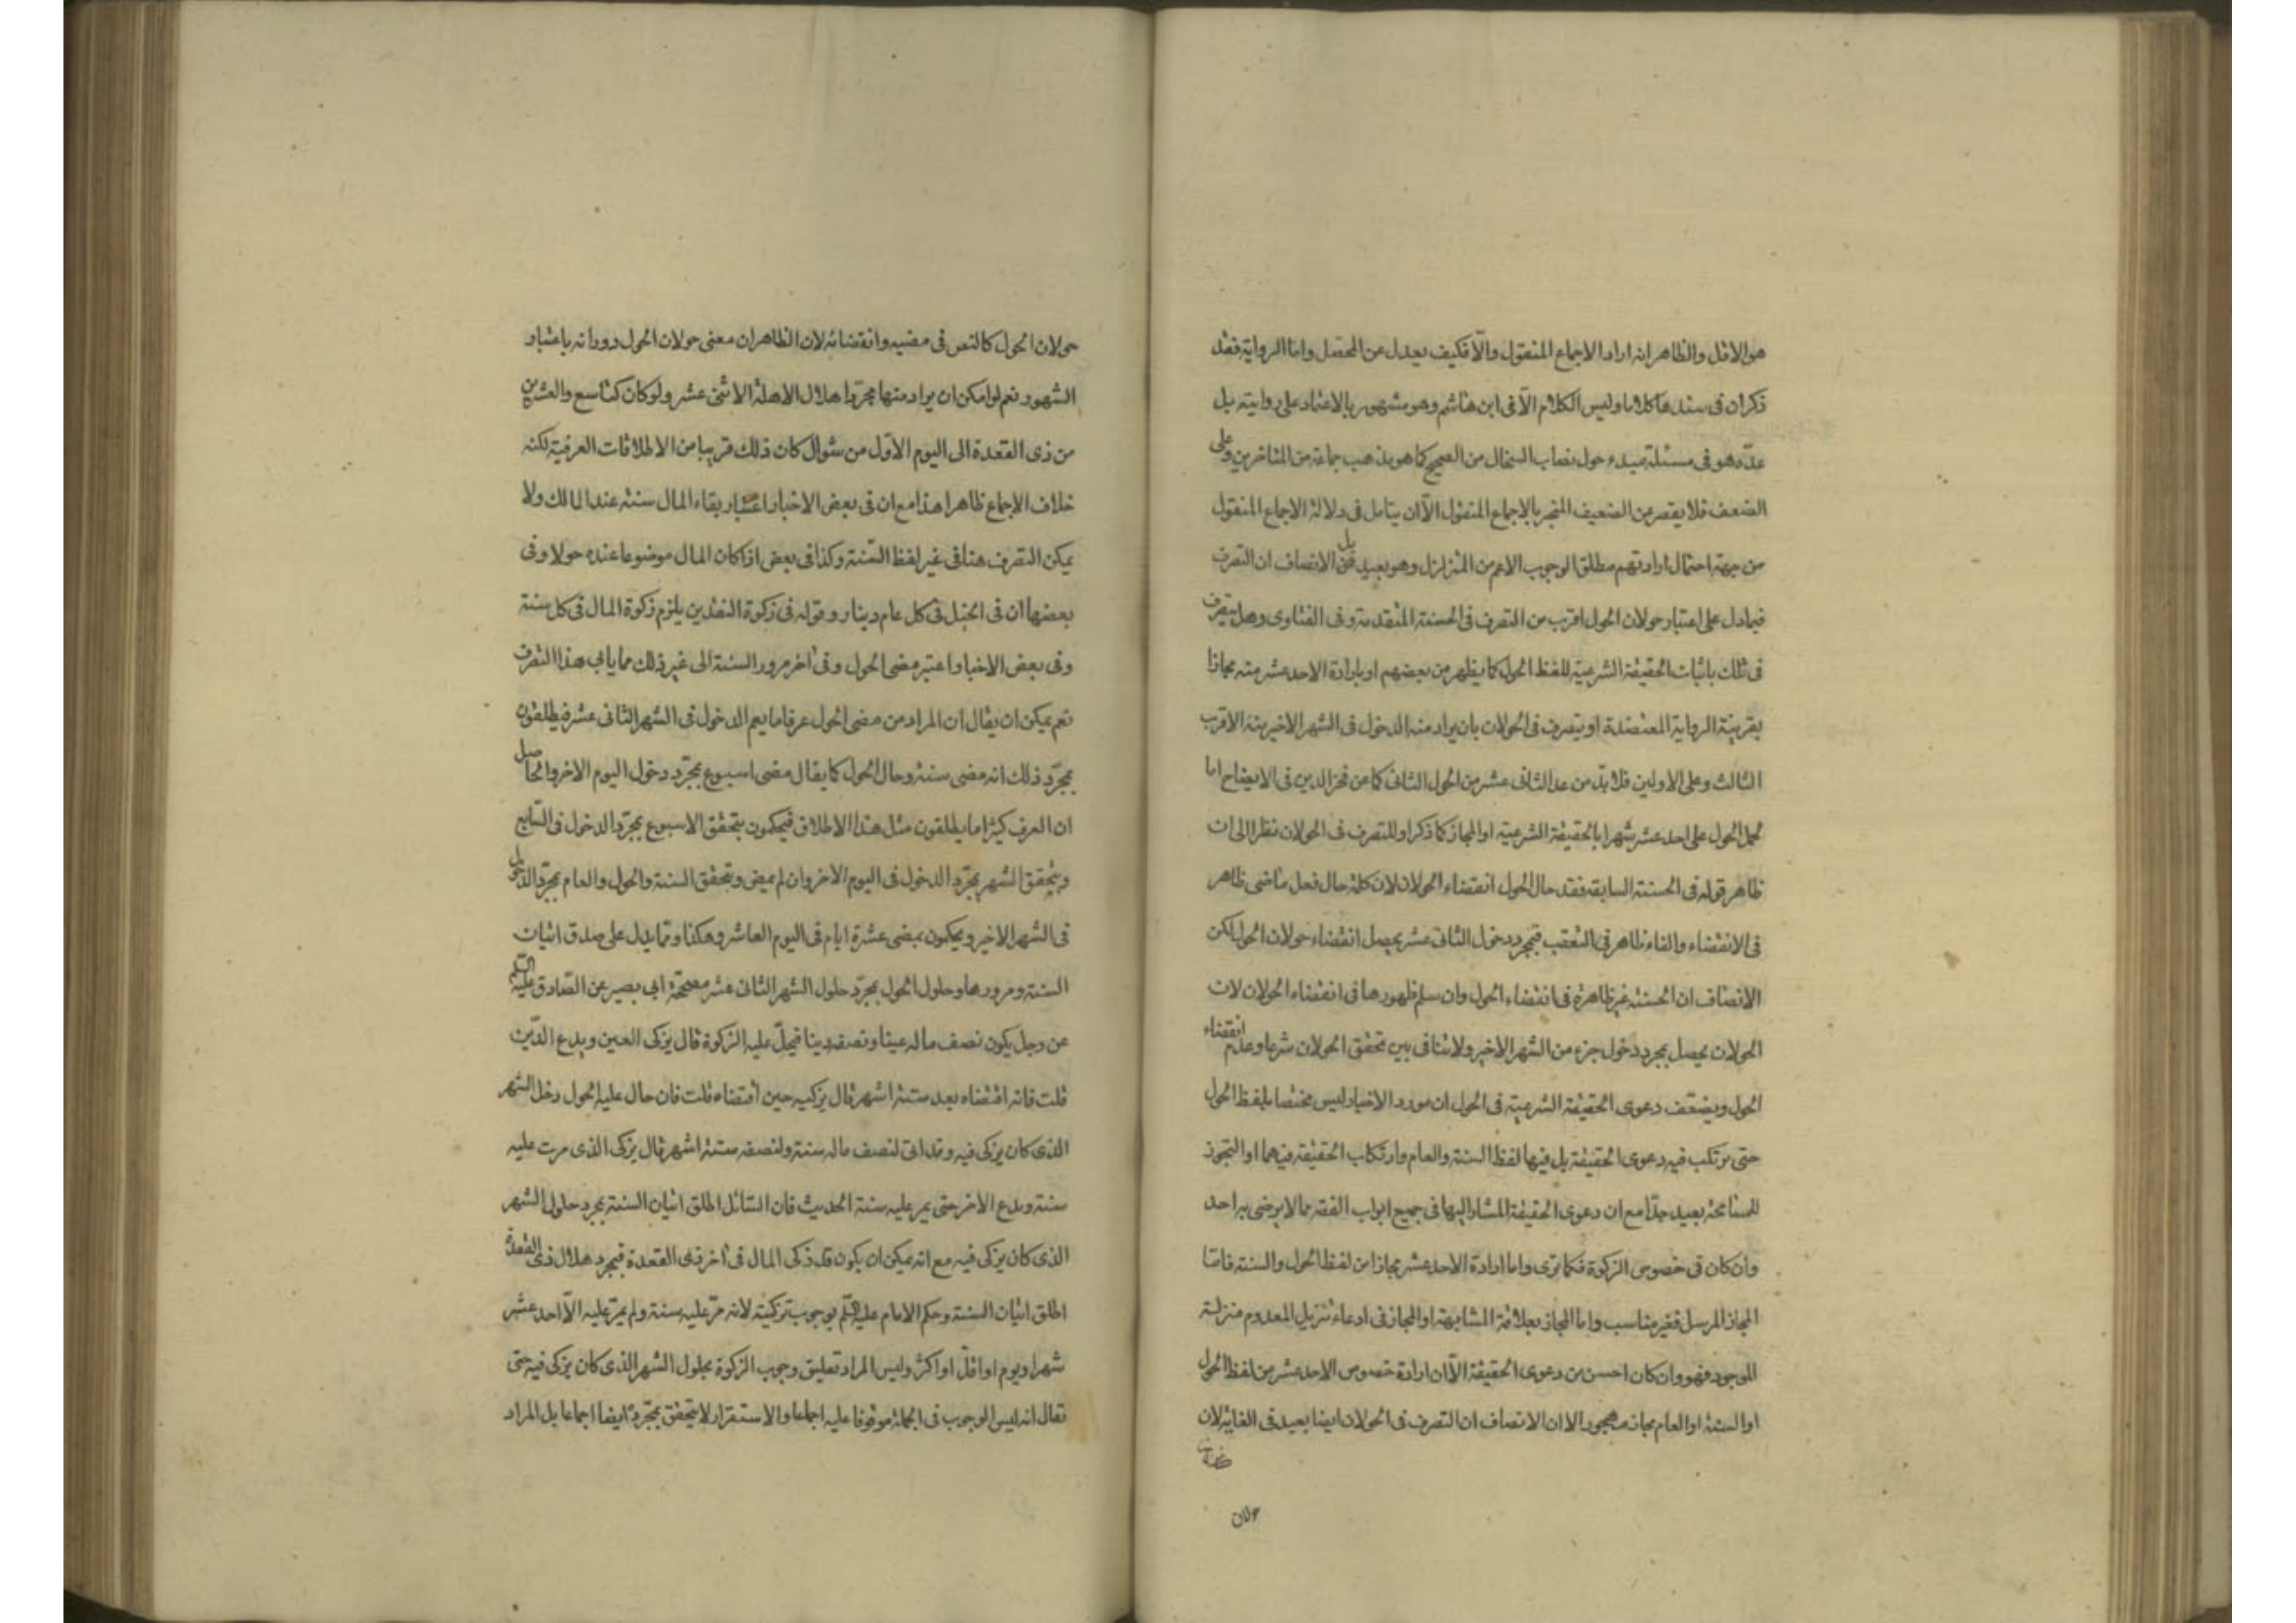 هو الاقل والظاهر انه اراد الاجماع المنقول والّا فكيف يعدل عن المحصل واما الرواية فقد
ذكران فى سندها كلاما وليس الكلام الّا فى ابن هاشم وهو مشهور بالاعتماد على روايته بل
عدّه هو فى مسئلة مبدء حول نصاب السخال من الصحيح كما هو مذهب جماعة من المتاخرين وعلى
الضعف فلا يقصر من الضعيف المنجبر بالاجماع المنقول الّا ان يتامل فى دلالة الاجماع المنقول
من جهة احتمال ارادتهم مطلق الوجوب الاعم من المتزلزل وهو بعيد بل الانصاف ان التصرف
فيما دل على اعتبار حولان الحول اقرب من التصرف فى الحسنة المتقدمة وفى الفتاوى وهل يتصرف
فى تلك باثبات الحقيقة الشرعية للفظ الحول كما يظهر من بعضهم او بارادة الاحد عشر منه مجازا
بقرينة الرواية المعتضدة او يتصرف فى الحولان بان يراد منه الدخول فى الشهر الاخير منه الاقرب
الثالث وعلى الاولين فلا بدّ من عد الثانى عشر من الحول الثانى كما عن فخر الدين فى الايضاح اما
لحمل الحول على احد عشر شهرا بالحقيقة الشرعية او المجاز كما ذكر او للتصرف فى الحولان نظرا الى ان
ظاهر قوله فى الحسنة السابقة فقد حال الحول انقضاء الحولان لان كلمة حال فعل ماضى ظاهر
فى الانقضاء والفاء ظاهر فى التعقب فبمجرد دخول الثانى عشر يحصل انقضاء حولان الحول لكن
الانصاف ان الحسنة غير ظاهرة فى انقضاء الحول وان سلم ظهورها فى انقضاء الحولان لان
الحولان يحصل بمجرد دخول جزء من الشهر الاخير ولا تنافى بين تحقق الحولان شرعا وعدم انقضاء
الحول ويضعّف دعوى الحقيقة الشرعية فى الحول ان مورد الاخبار ليس مختصا بلفظ الحول
حتى يرتكب فيه دعوى الحقيقة بل فيها لفظ السنة والعام وارتكاب الحقيقة فيهما او التجوز
للمسامحة بعيد جدّا مع ان دعوى الحقيقة المشار اليها فى جميع ابواب الفقه مما لا يرضى به احد
وان كان فى خصوص الزكوة فكما ترى واما ارادة الاحد عشر مجازا من لفظ الحول والسنة فامّا
المجاز المرسل فغير مناسب واما المجاز بعلاقة المشابهة او المجاز فى ادعاء تنزيل المعدوم منزلة
الموجود فهو وان كان احسن من دعوى الحقيقة الّا ان ارادة خصوص الاحد عشر من لفظ الحول
او السنة او العام مجاز مهجور الا ان الانصاف ان التصرف فى الحولان ايضا بعيد فى الغاية لان
حولان
حولان الحول كالنص فى مضيه وانقضائه لان الظاهر ان معنى حولان الحول دورانه باعتبار
الشهور نعم لو امكن ان يراد منها مجرّد اهلال الاهلة الاثنى عشر ولو كان كتاسع والعشرين
من ذى القعدة الى اليوم الاوّل من شوال كان ذلك قريبا من الاطلاقات العرفية لكنه
خلاف الاجماع ظاهرا هذا مع ان فى بعض الاخبار اعتبار بقاء المال سنة عند المالك ولا
يمكن التصرف هنا فى غير لفظ السّنة وكذا فى بعض اذا كان المال موضوعا عنده حولا وفى
بعضها ان فى الخيل فى كل عام دينار وقوله فى زكوة النقدين يلزم زكوة المال فى كل سنة
وفى بعض الاخبار اعتبر مضى الحول وفى آخر مرور السنة الى غير ذلك مما يابى هذا التصرف
نعم يمكن ان يقال ان المراد من مضى الحول عرفا ما يعم الدخول فى الشهر الثانى عشر فيطلقون
بمجرّد ذلك انه مضى سنة وحال الحول كما يقال مضى اسبوع بمجرّد دخول اليوم الاخر والحاصل
ان العرف كثيرا ما يطلقون مثل هذا الاطلاق فيحكمون بتحقق الاسبوع بمجرّد الدخول فى السّابع
ويتحقق الشهر بمجرّد الدخول فى اليوم الاخر وان لم يمض وتحقق السنة والحول والعام بمجرّد الدخول
فى الشهر الاخير ويحكمون بمضى عشرة ايام فى اليوم العاشر وهكذا ومما يدل على صدق اتيان
السنة ومرورها وحلول الحول بمجرّد حلول الشهر الثانى عشر مصحّحة ابى بصير عن الصّادق عليه السّلم
عن رجل يكون نصف ماله عينا ونصفه دينا فيحلّ عليه الزكوة قال يزكى العين ويدع الدّين
قلت فانه اقتضاه بعد ستة اشهر قال يزكيه حين اقتضاه قلت فان حال عليه الحول ودخل الشهر
الذى كان يزكى فيه وقد اتى لنصف ماله سنة ولنصفه ستة اشهر قال يزكى الذى مرت عليه
سنة ويدع الاخر حتى يمر عليه سنة الحديث فان السّائل اطلق اتيان السنة بمجرد حلول الشهر
الذى كان يزكى فيه مع انه يمكن ان يكون قد زكى المال فى آخر ذى القعدة فبمجرد هلال ذى القعدة
اطلق اتيان السنة وحكم الامام عليه السّلم بوجوب تزكيته لانه مرّ عليه سنة ولم يمرّ عليه الّا احد عشر
شهرا ويوم او اقلّ او اكثر وليس المراد تعليق وجوب الزكوة بحلول الشهر الذى كان يزكى فيه حتى
تقال انه ليس الوجوب فى الجملة موقوفا عليه اجماعا والاستقرار لا يتحقق بمجرّده ايضا اجماعا بل المراد